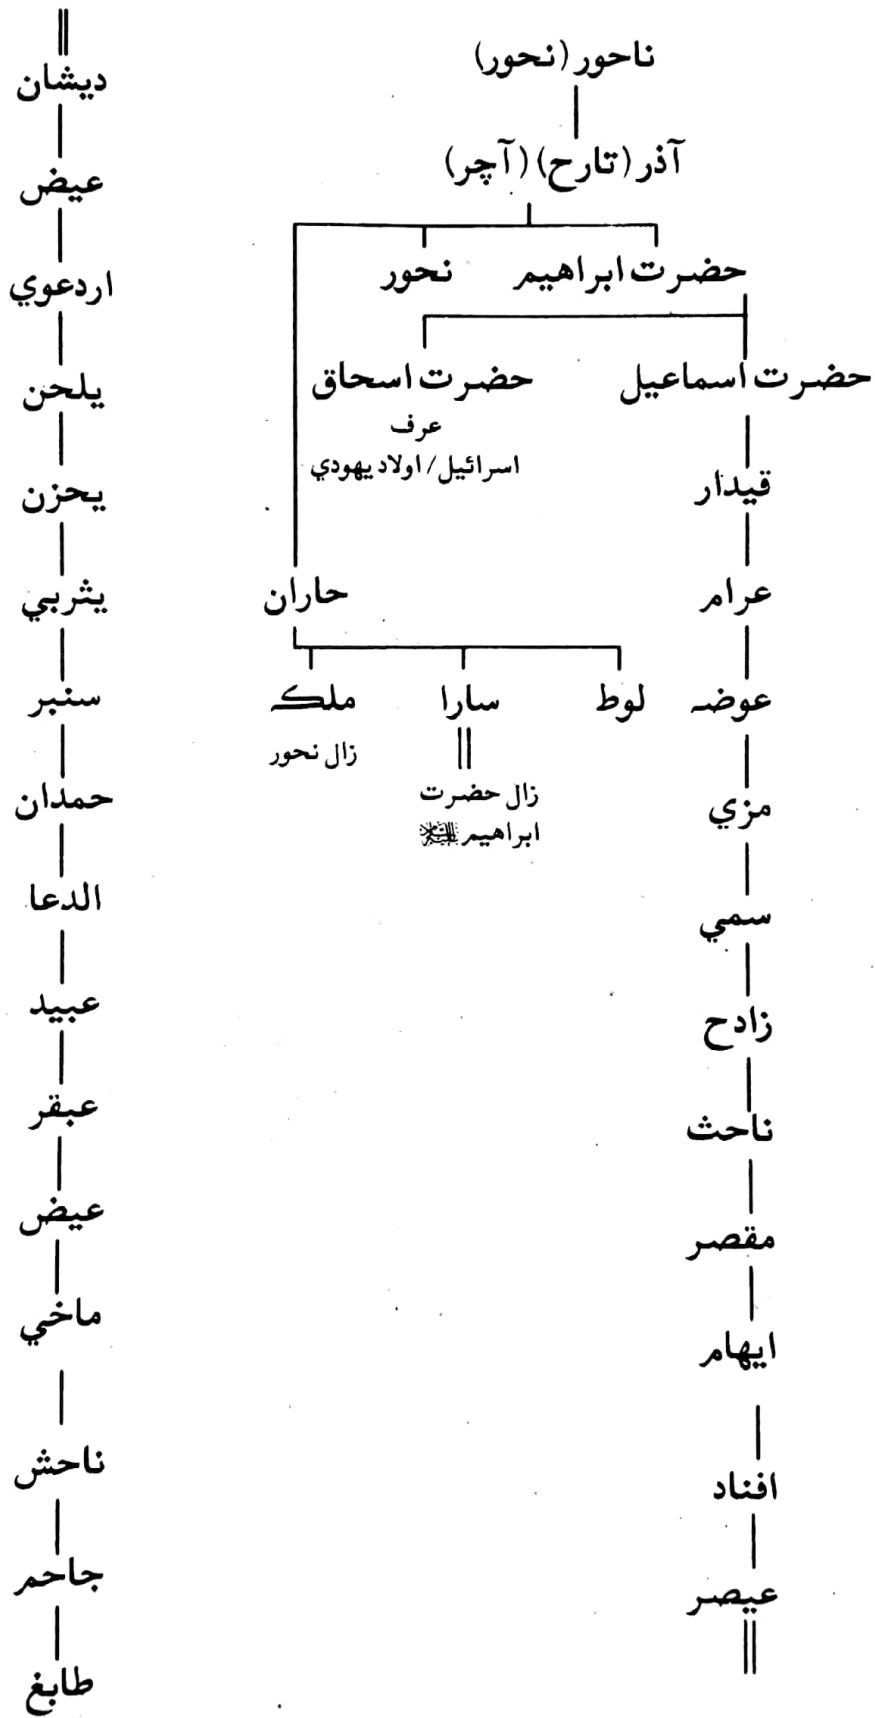 ناحور (نحور)
آذر (تارح) (آچر)
حضرت ابراهيم
نحور
حضرت اسماعيل
حضرت اسحاق
عرف
اسرائيل/ اولاد يهودي
قيدار
حاران
عرام
لوط
سارا
ملڪه
زال نحور
زال حضرت
ابراهيم ؑ
عوضه
مزي
سمي
زادح
ناحث
مقصر
ايهام
افناد
عيصر
ديشان
عيض
اردعوي
يلحن
يحزن
يثربي
سنبر
حمدان
الدعا
عبيد
عبقر
عيض
ماخي
ناحش
جاحم
طابغ